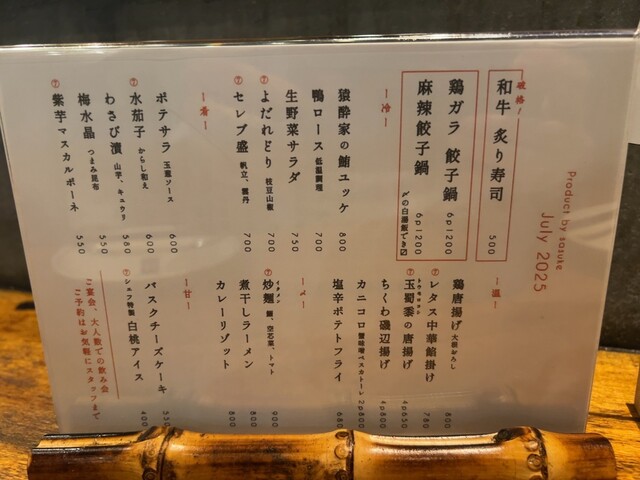 Product by sasuke
July 2025
破格!
和牛 炙り寿司 500
鶏ガラ 餃子鍋 6p1200
麻辣餃子鍋 6p1200
〆の白湯飯でき〼
ー冷ー
猿酔家の鮪ユッケ 800
鴨ロース 低温調理 700
生野菜サラダ 750
⑦よだれどり 枝豆山椒 700
⑦セレブ盛 帆立、雲丹 700
ー肴ー
ポテサラ 玉葱ソース 600
⑦水茄子 からし和え 600
わさび漬 山芋、キュウリ 580
梅水晶 つまみ昆布 550
⑦紫芋マスカルポーネ 550
ー温ー
鶏唐揚げ 大根おろし 800
⑦レタス中華餡掛け 780
⑦玉蜀黍の唐揚げ 4p650
トウモロコシ
ちくわ磯辺揚げ 4p800
カニコロ 蟹味噌ペスカトーレ 2p800
塩辛ポテトフライ 680
ー〆ー
⑦炒麺 蝦、空芯菜、トマト 900
煮干しラーメン 800
カレーリゾット 800
ー甘ー
バスクチーズケーキ 550
⑦シェフ特製 白桃アイス 400
ご宴会、大人数での飲み会
ご予約はお気軽にスタッフまで